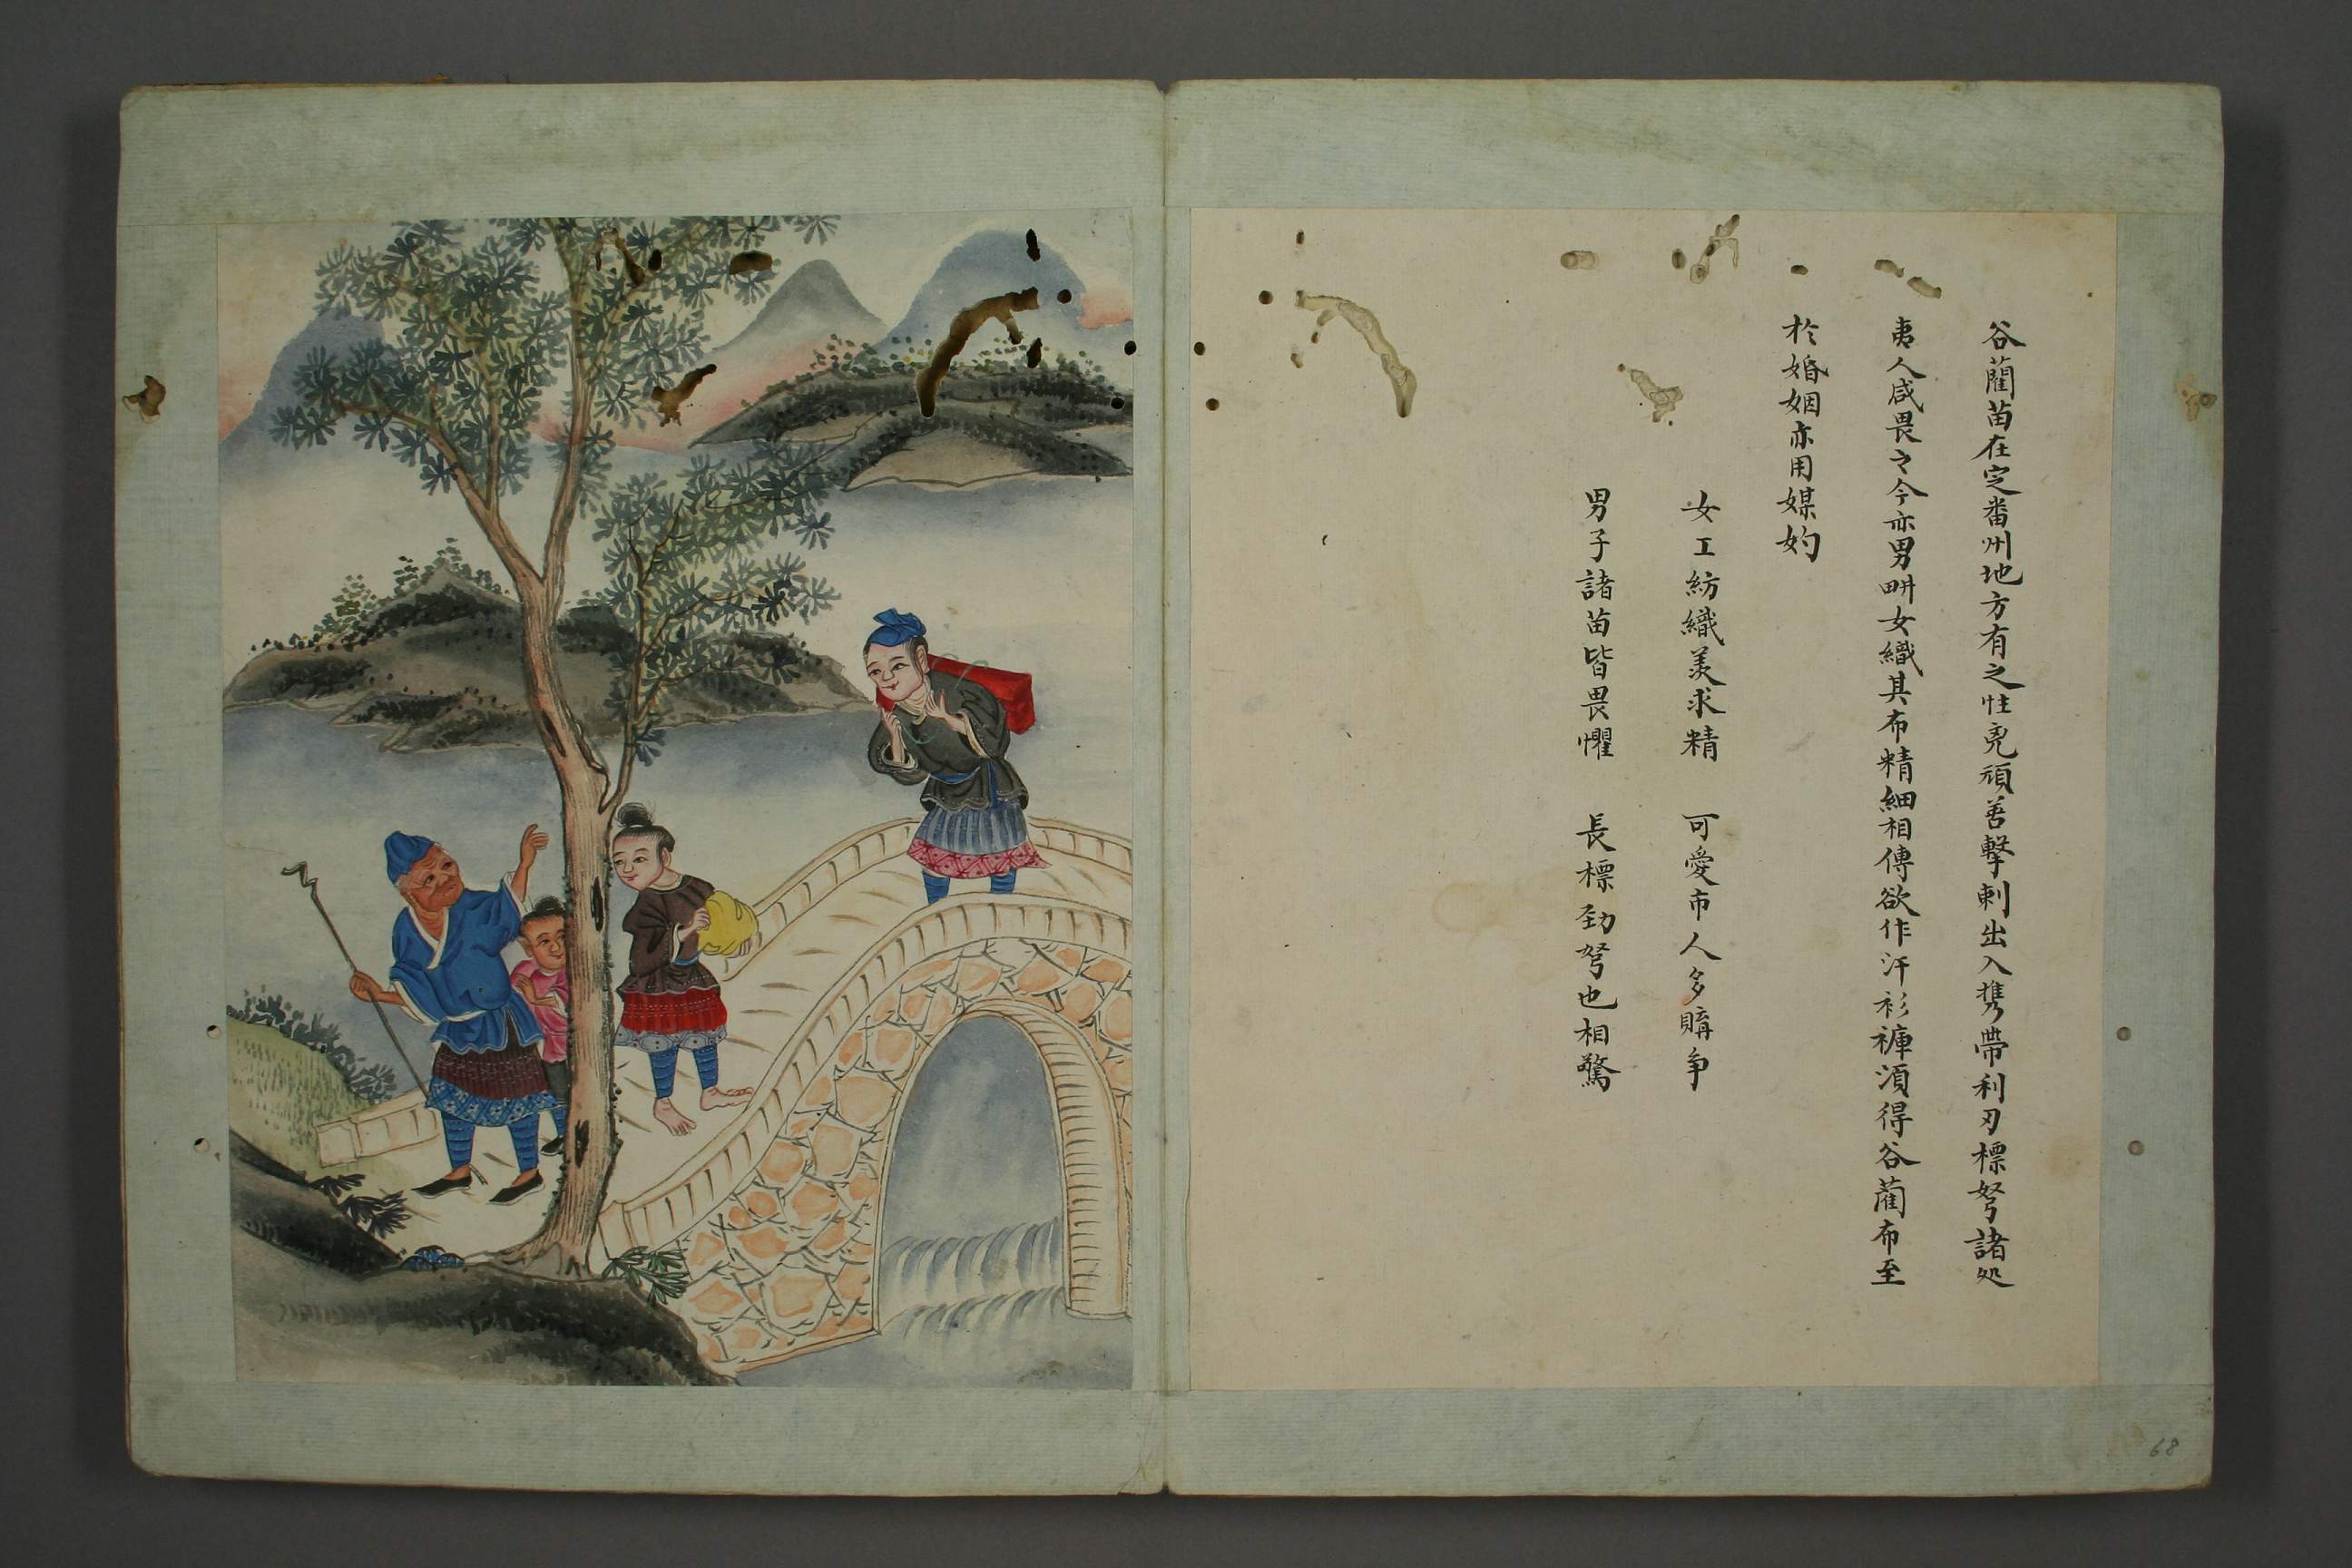 谷藺苗在定番州地方有之性兇頑善擊刺出入携帶利刃標弩諸処
夷人咸畏之今亦男畊女織其布精細相傳欲作汗衫褲須得谷藺布至
扵婚姻亦用媒妁
女工紡織羙求精 可愛市人多購争
男子諸苗皆畏懼 長標劲弩也相驚
68